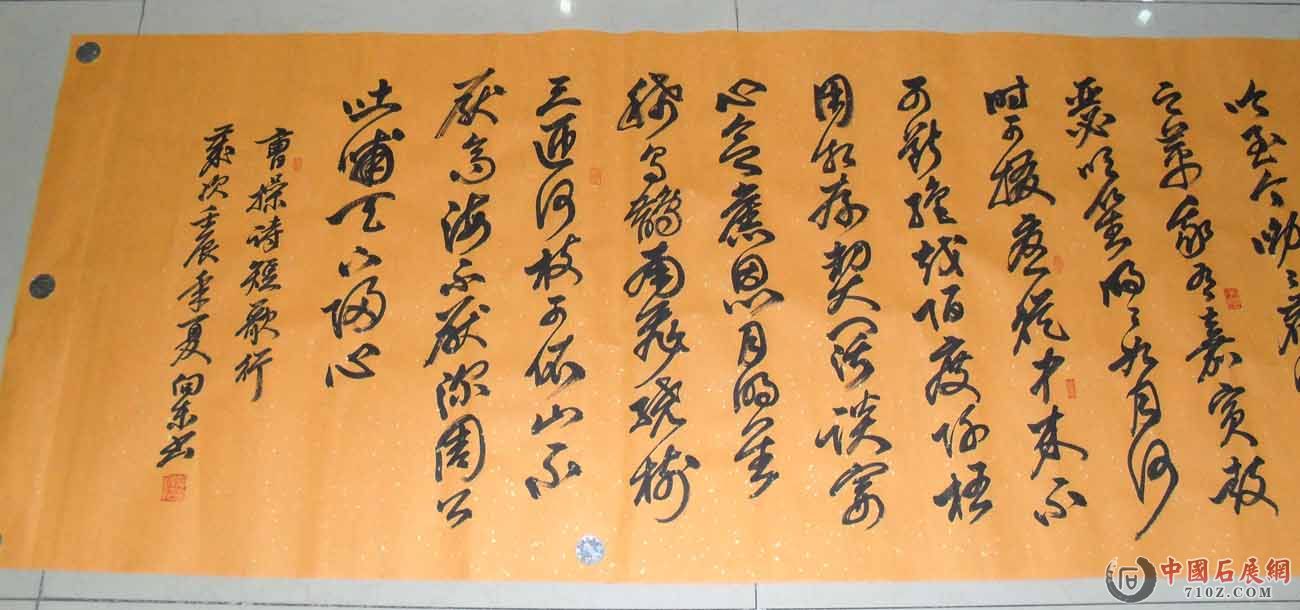 吟至今呦々鹿
之苹我有嘉宾鼓
瑟吹笙明々如月何
时可掇忧从中来不
可断绝越陌度阡枉
用相存契阔谈宴
心念舊恩月明星
稀乌鹊南飞绕树
三匝何枝可依山不
厌高海不厌深周公
吐哺天下归心
曹操诗短歌行
岁次壬辰年夏向东书
中國石展網
71OZ.COM